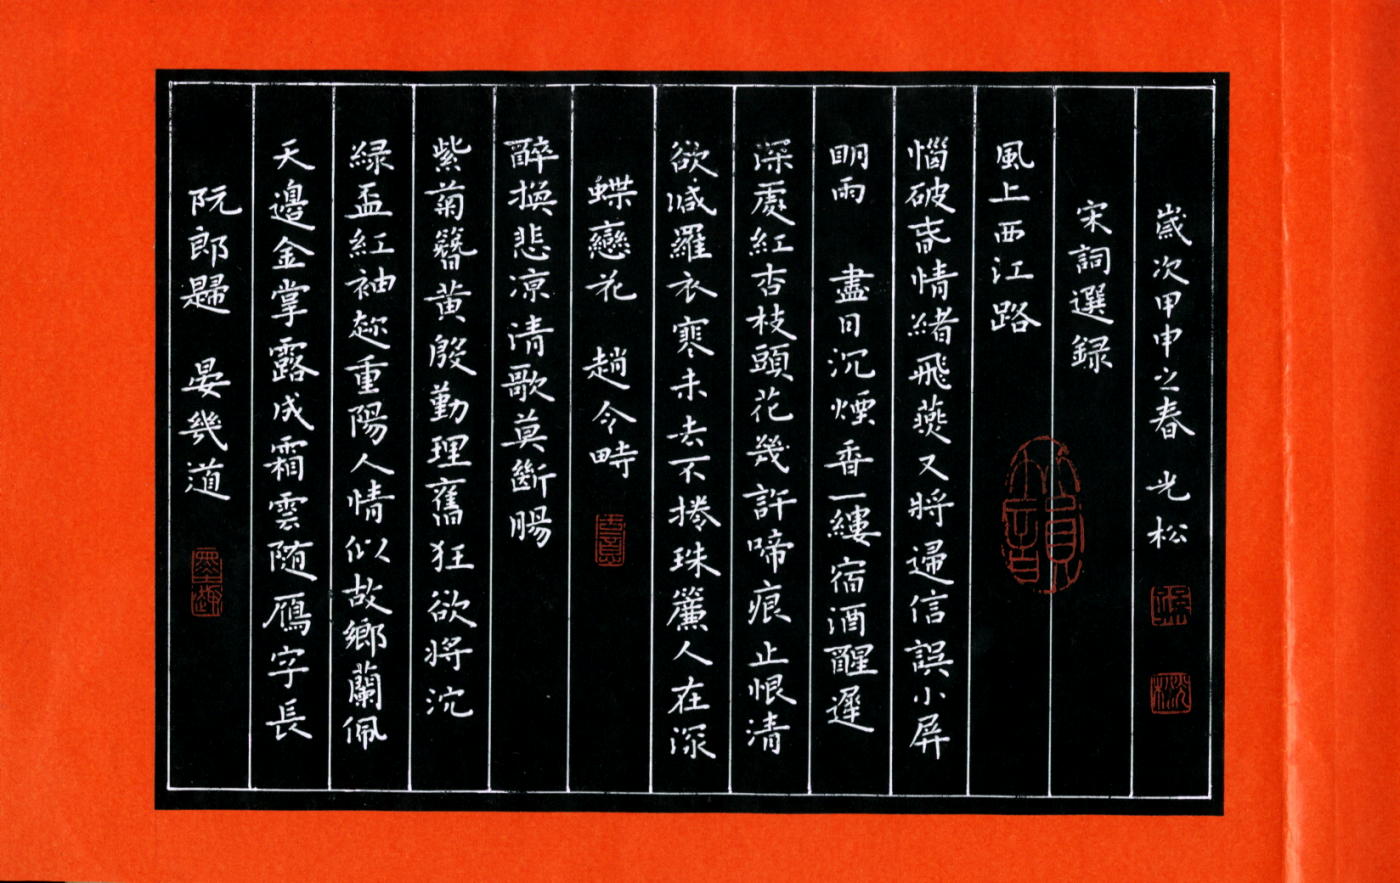 阮郎歸　晏幾道
墨趣
天邊金掌露成霜雲随鴈字長
緑盃紅袖趂重陽人情似故鄉蘭佩
紫菊簪黄殷勤理舊狂欲將沉
醉換悲凉清歌莫斷腸
蝶戀花　趙令畤
欲减羅衣寒未去不捲珠簾人在深
深處紅杏枝頭花幾許啼痕止恨清
眀雨　盡日沉煙香一縷宿酒醒遲
惱破春情緒飛燕又將歸信誤小屏
風上西江路
宋詞選録
歲次甲申之春　光松